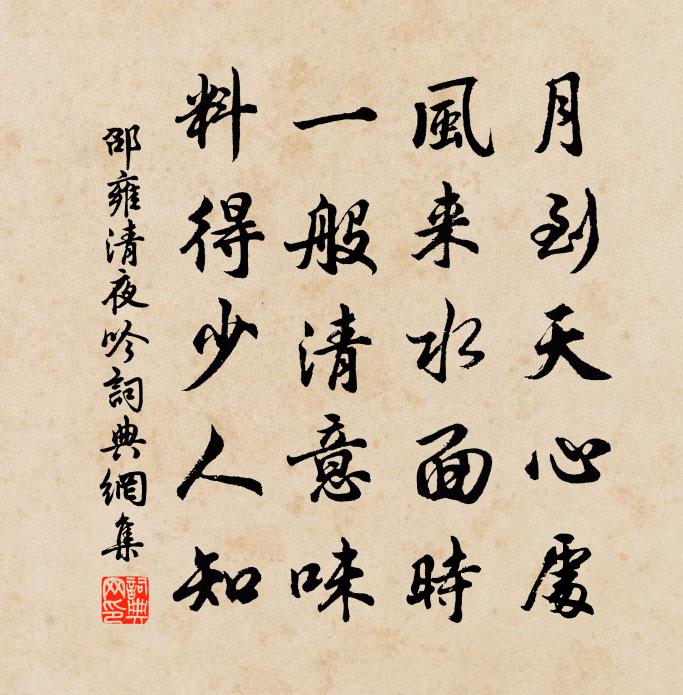 月到天心處
風来水面時
一般清意味
料得少人知
邵雍清夜吟詞典網集
詞典網印